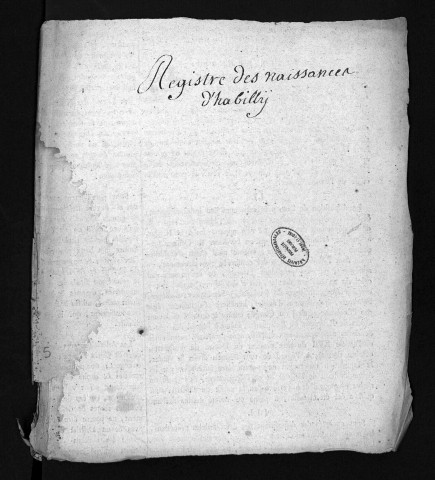 Registre des naissances
d'habilly
5